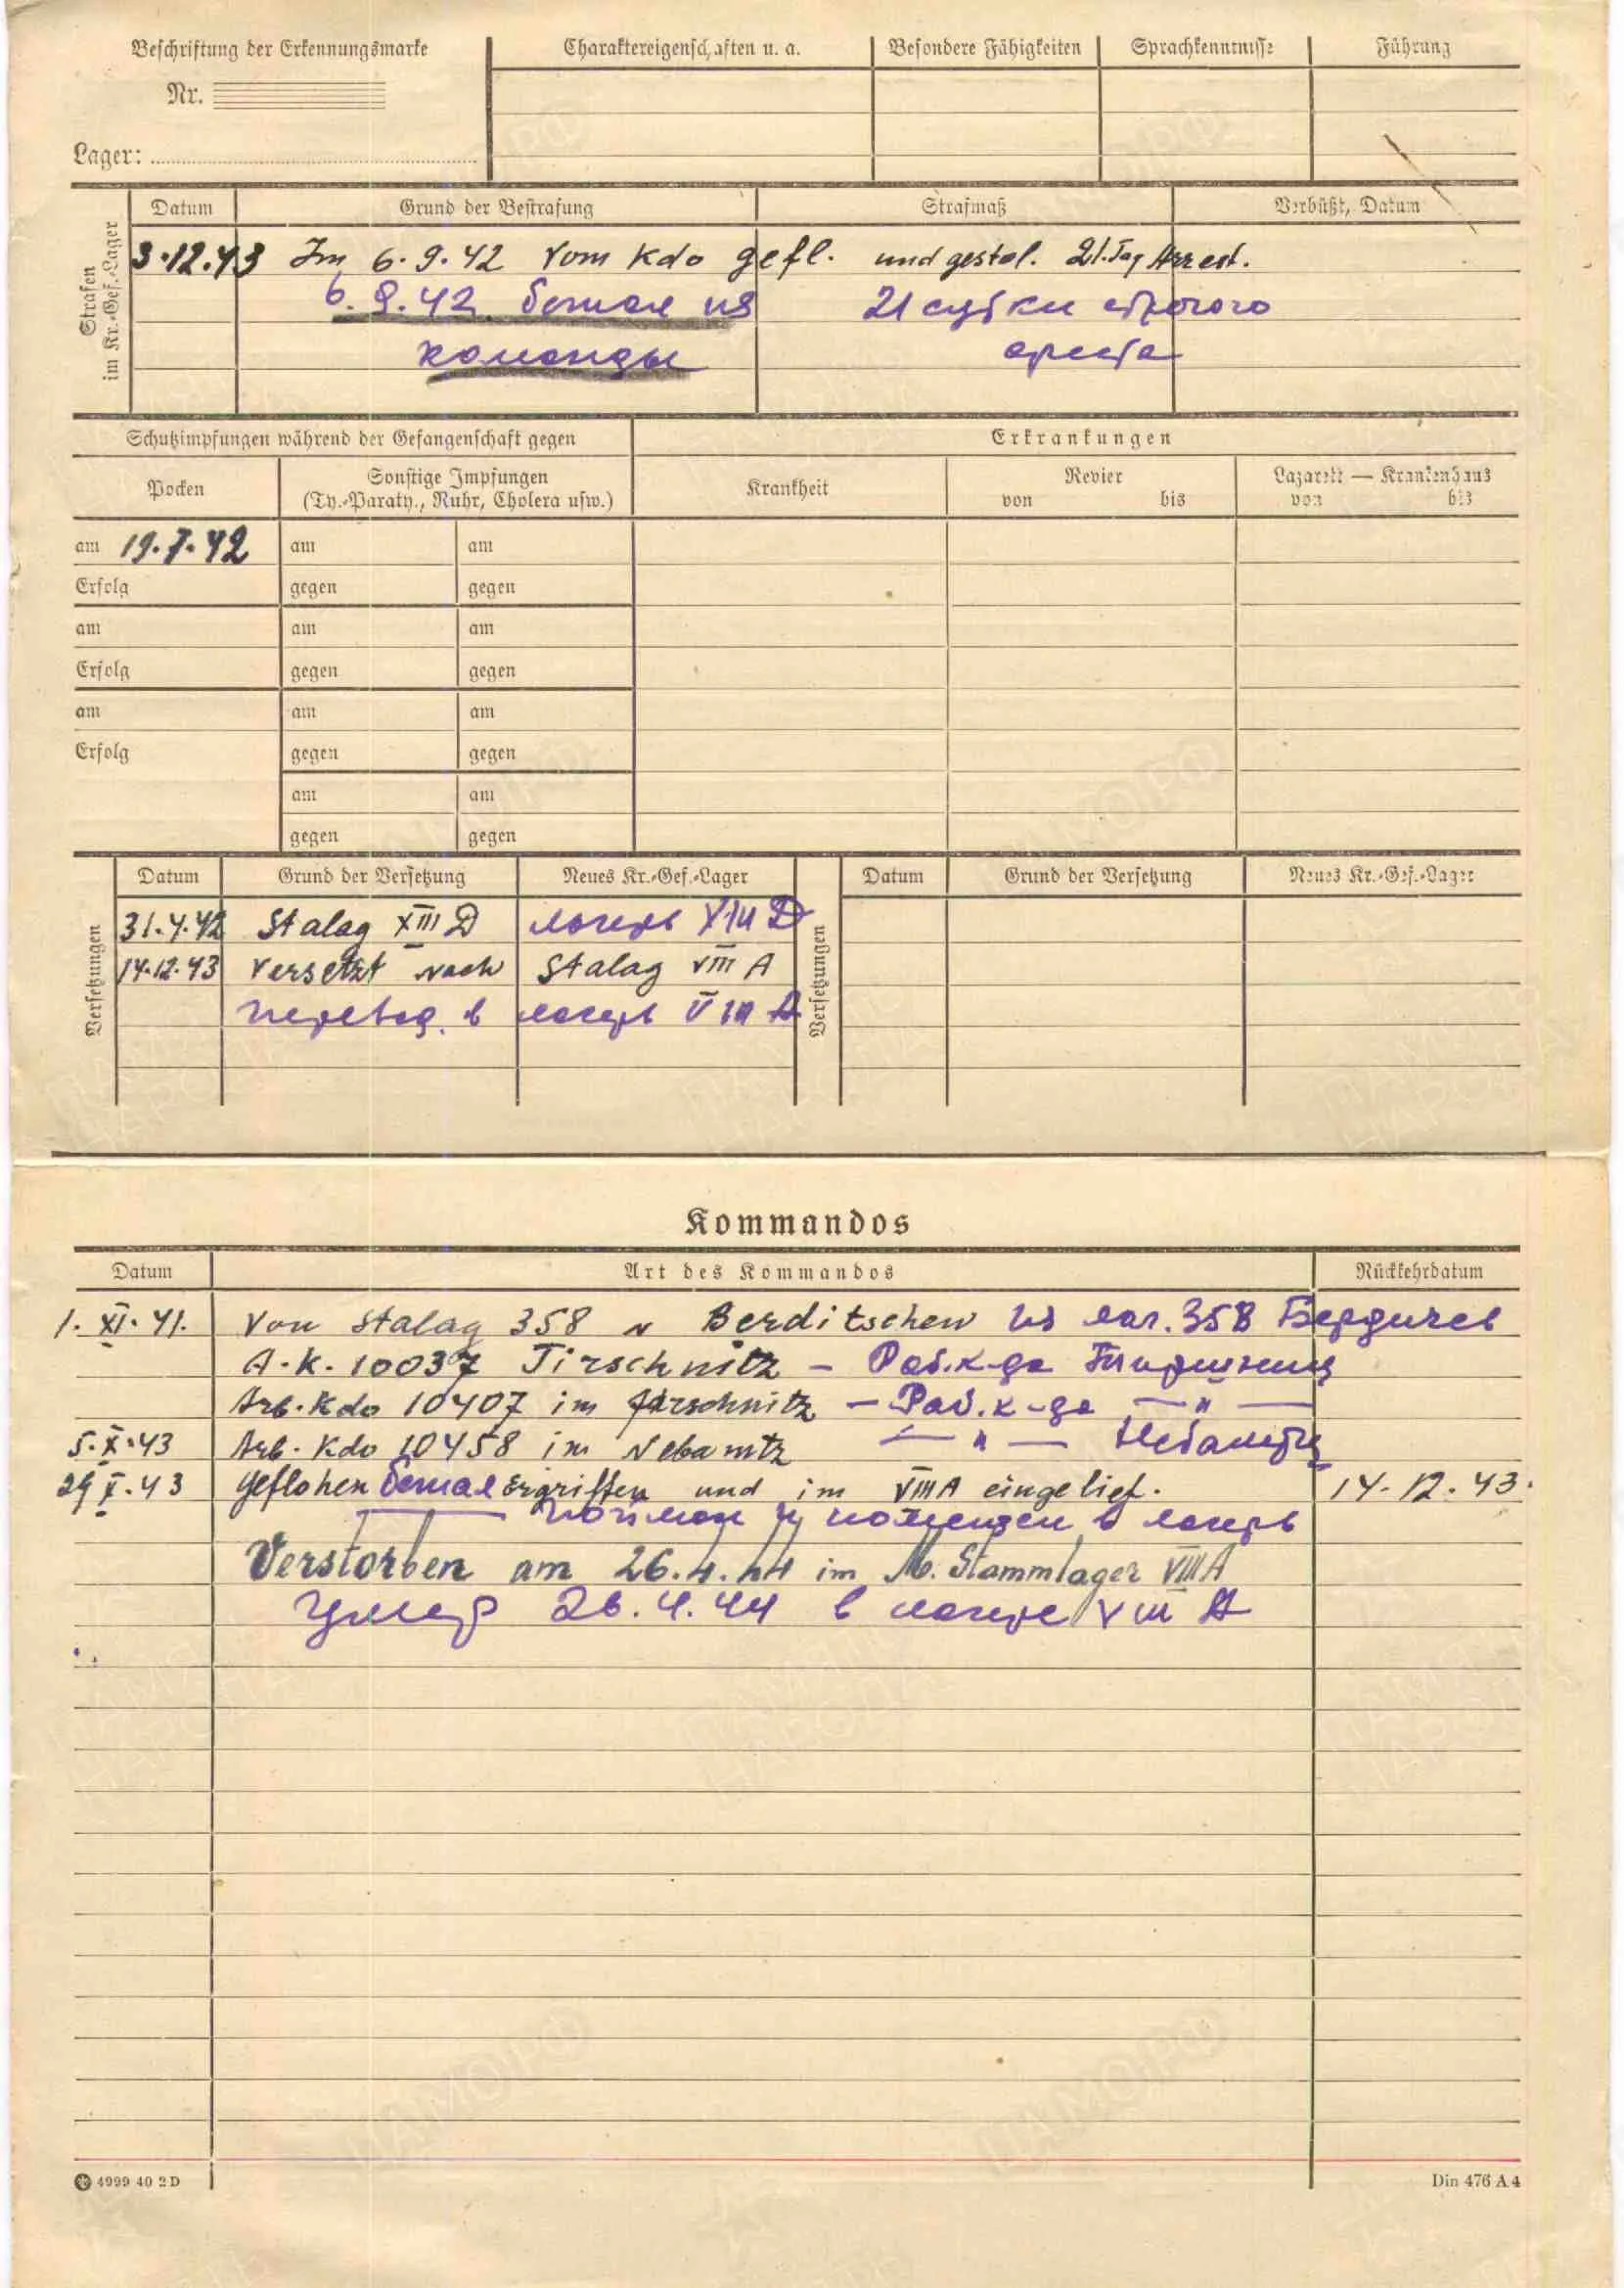 Beschriftung der Erkennungsmarke
Nr.
Lager:
Charaktereigenschaften u. a.
Besondere Fähigkeiten
Sprachkenntnisse
Führung
Strafen im Kr.-Gef.-Lager
Datum Grund der Bestrafung Strafmaß Verbüßt, Datum
3.12.43 Im 6.9.42 vom Kdo gefl. und gestol. 21.Tag Arrest.
6.9.42 бежал из 21 сутки строгого
команды ареста
Schutzimpfungen während der Gefangenschaft gegen Erkrankungen
Pocken Sonstige Impfungen Krankheit Revier Lazarett — Krankenhaus
(Ty.-Paraty., Ruhr, Cholera usw.) von bis von bis
am 19.7.42 am am
Erfolg gegen gegen
am am am
Erfolg gegen gegen
am am am
Erfolg gegen gegen
am am
gegen gegen
Versetzungen
Datum Grund der Versetzung Neues Kr.-Gef.-Lager
31.4.42 Stalag XIII D лагерь XIII D
14.12.43 versetzt nach Stalag VIII A
перевед. в лагерь VIII A
Versetzungen
Datum Grund der Versetzung Neues Kr.-Gef.-Lager
Kommandos
Datum Art des Kommandos Rückkehrdatum
1. XI. 41. Von Stalag 358 Berditschew из лаг. 358 Бердичев
A.K. 10037 Tirschnitz – Раб. к-да Тиршниц
Arb. Kdo 10407 im Tirschnitz – Раб. к-да — " —
5. X. 43 Arb. Kdo 10458 im Nebanitz — " — Небаниц
29 X. 43 geflohen бежал Ergriffen und im VIII A eingelief. 14.12.43.
пойман и помещен в лагерь
Verstorben am 26.4.44 im M. Stammlager VIII A
Умер 26.4.44 в лагере VIII A
4999 40 2 D
Din 476 A 4